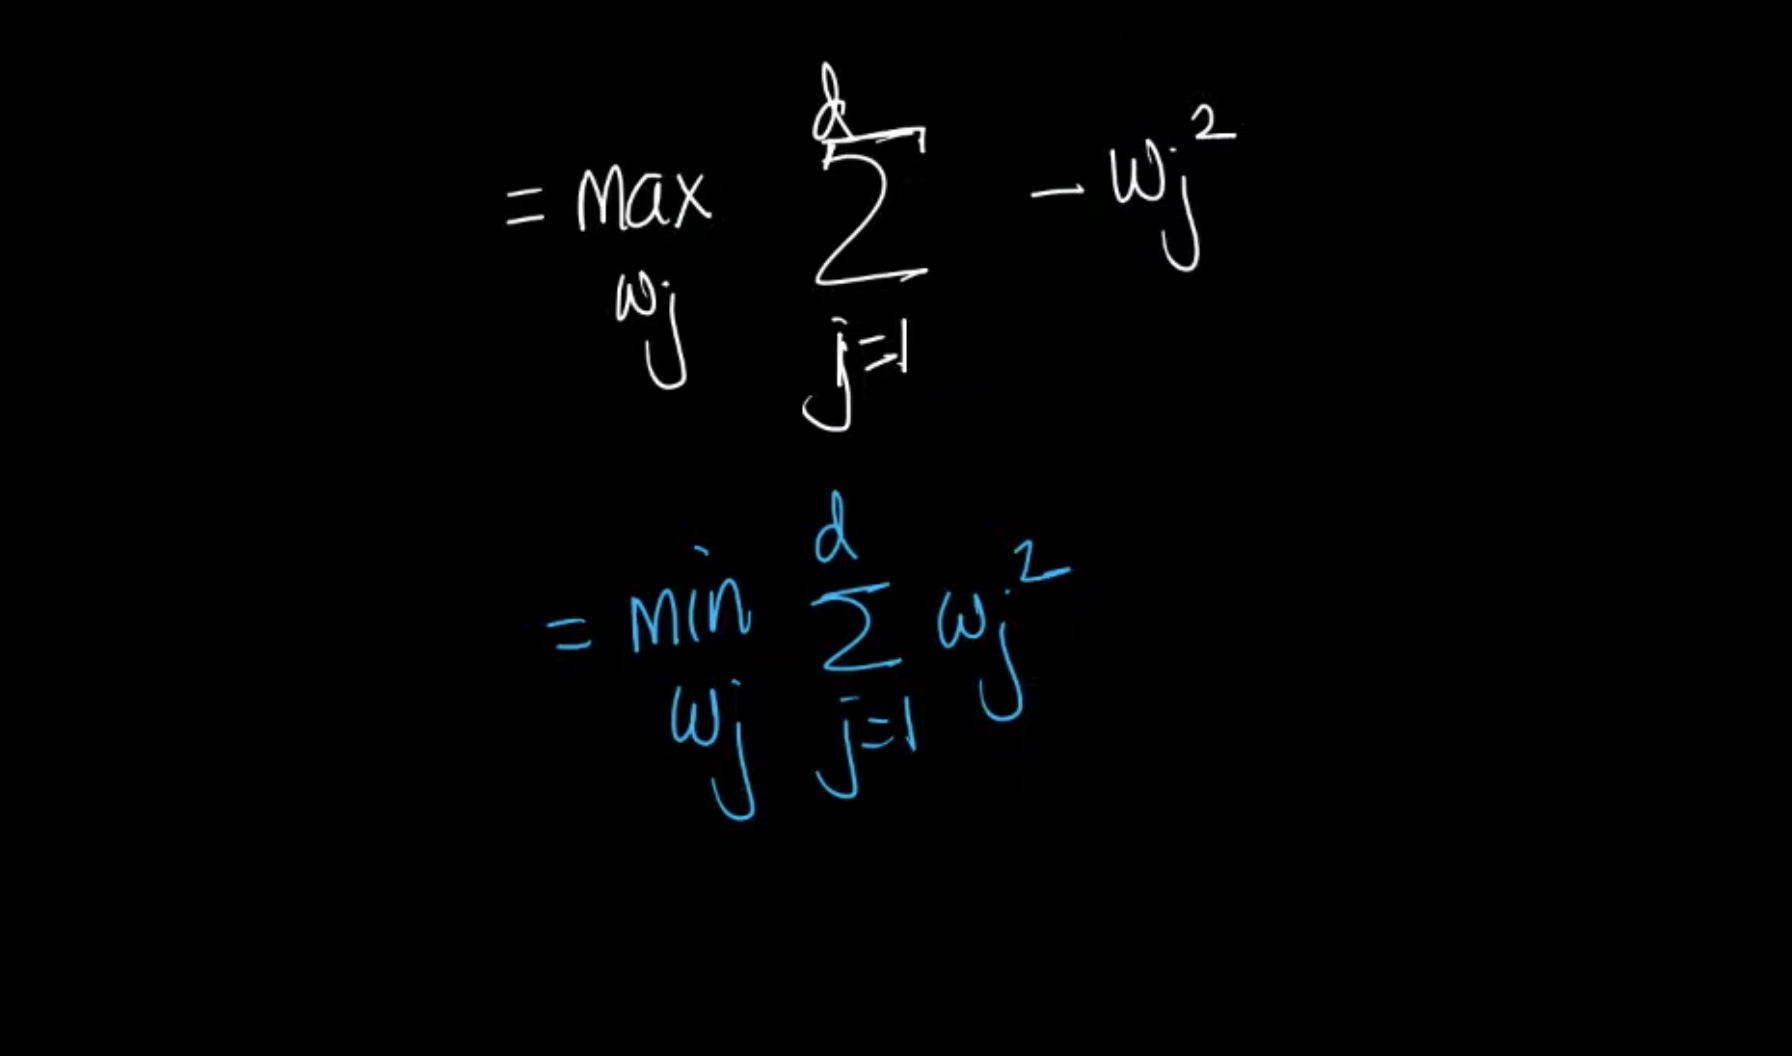 = max_{wj} \sum_{j=1}^{d} - wj^2
= min_{wj} \sum_{j=1}^{d} wj^2